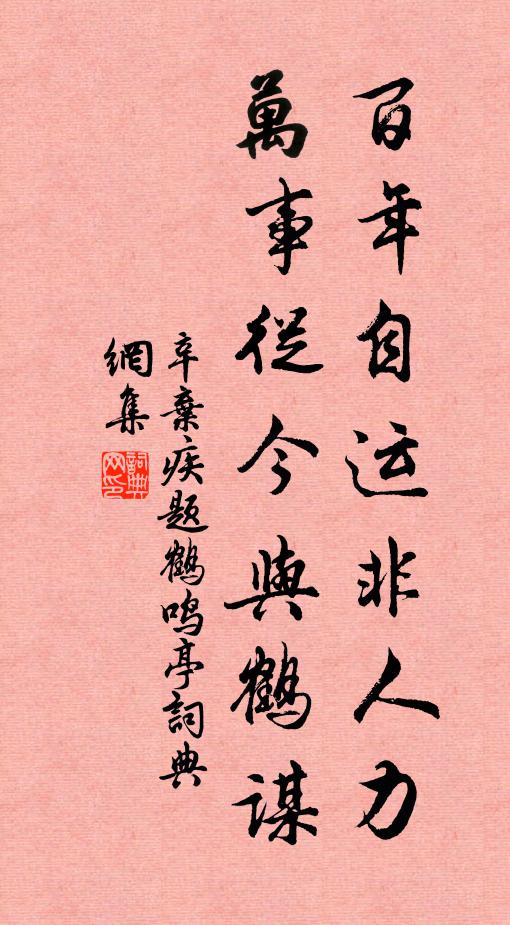 百年自运非人力
萬事從今與鶴謀
辛棄疾题鶴鸣亭詞典
網集
詞典
网印